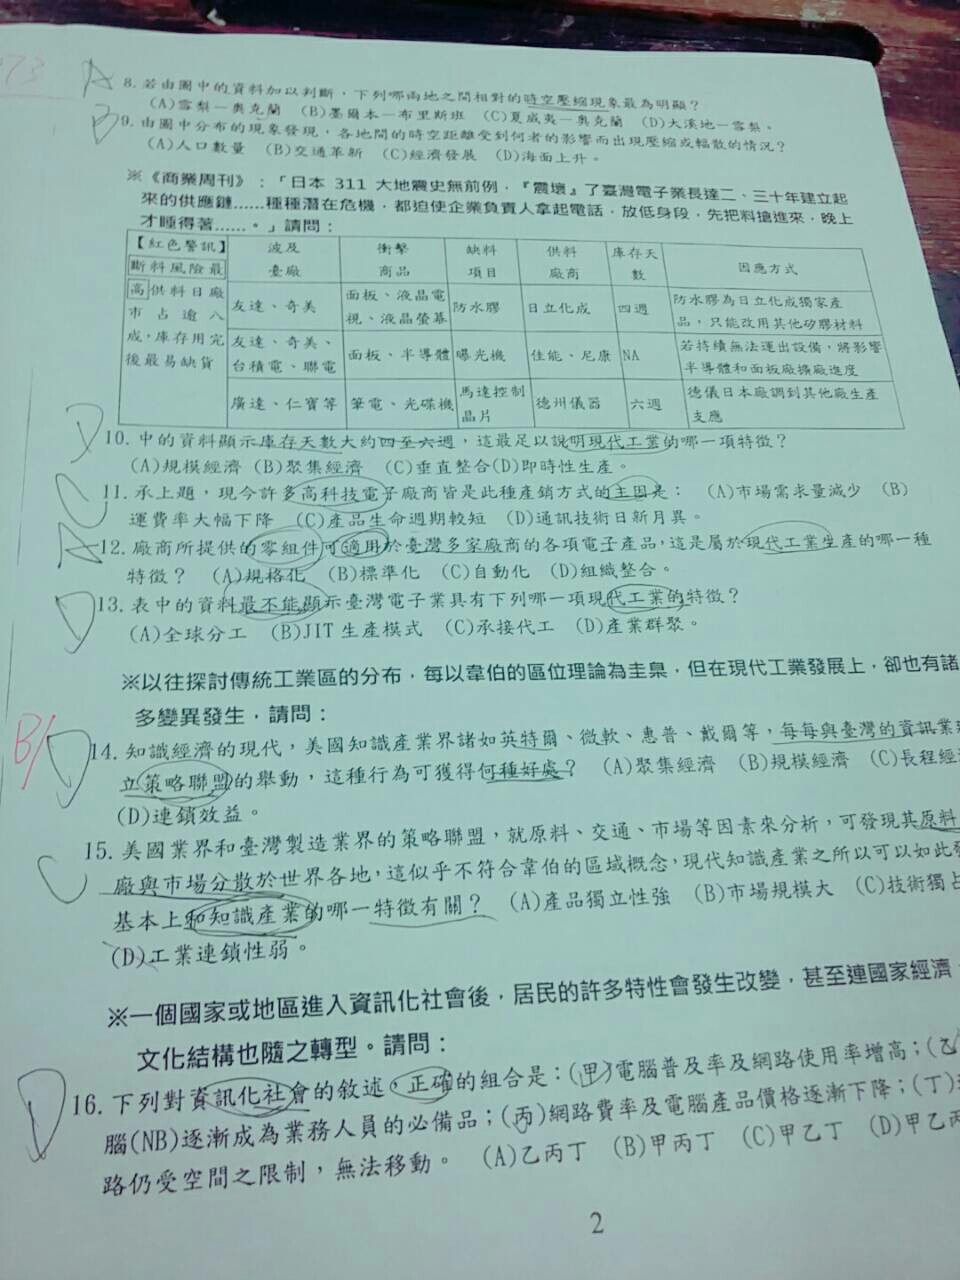 73
A 8. 若由圖中的資料加以判斷，下列哪兩地之間相對的時空壓縮現象最為明顯？
(A)雪梨－奧克蘭 (B)墨爾本－布里斯班 (C)夏威夷－奧克蘭 (D)大溪地－雪梨。
B 9. 由圖中分布的現象發現，各地間的時空距離受到何者的影響而出現壓縮或輻散的情況？
(A)人口數量 (B)交通革新 (C)經濟發展 (D)海面上升。
※《商業周刊》：「日本 311 大地震史無前例，『震壞』了臺灣電子業長達二、三十年建立起
來的供應鏈……種種潛在危機，都迫使企業負責人拿起電話，放低身段，先把料搶進來，晚上
才睡得著……。」請問：
【紅色警訊】 斷料風險最高 供料日廠市占逾八成，庫存用完後最易缺貨
波及臺廠 衝擊商品 缺料項目 供料廠商 庫存天數 因應方式
友達、奇美 面板、液晶電視、液晶螢幕 防水膠 日立化成 四週 防水膠為日立化成獨家產品，只能改用其他矽膠材料
友達、奇美、台積電、聯電 面板、半導體 曝光機 佳能、尼康 NA 若持續無法運出設備，將影響半導體和面板廠擴廠進度
廣達、仁寶等 筆電、光碟機 馬達控制晶片 德州儀器 六週 德儀日本廠調到其他廠生產支應
D 10. 中的資料顯示庫存天數大約四至六週，這最足以說明現代工業的哪一項特徵？
(A)規模經濟 (B)聚集經濟 (C)垂直整合(D)即時性生產。
C 11. 承上題，現今許多高科技電子廠商皆是此種產銷方式的主因是： (A)市場需求量減少 (B)
運費率大幅下降 (C)產品生命週期較短 (D)通訊技術日新月異。
A 12. 廠商所提供的零組件可適用於臺灣多家廠商的各項電子產品，這是屬於現代工業生產的哪一種
特徵？ (A)規格化 (B)標準化 (C)自動化 (D)組織整合。
D 13. 表中的資料最不能顯示臺灣電子業具有下列哪一項現代工業的特徵？
(A)全球分工 (B)JIT 生產模式 (C)承接代工 (D)產業群聚。
※以往探討傳統工業區的分布，每以韋伯的區位理論為圭臬，但在現代工業發展上，卻也有諸
多變異發生，請問：
B/ D 14. 知識經濟的現代，美國知識產業界諸如英特爾、微軟、惠普、戴爾等，每每與臺灣的資訊業
立策略聯盟的舉動，這種行為可獲得何種好處？ (A)聚集經濟 (B)規模經濟 (C)長程經
(D)連鎖效益。
C 15. 美國業界和臺灣製造業界的策略聯盟，就原料、交通、市場等因素來分析，可發現其原料
廠與市場分散於世界各地，這似乎不符合韋伯的區域概念，現代知識產業之所以可以如此
基本上和知識產業的哪一特徵有關？ (A)產品獨立性強 (B)市場規模大 (C)技術獨占
(D)工業連鎖性弱。
※一個國家或地區進入資訊化社會後，居民的許多特性會發生改變，甚至連國家經濟、
文化結構也隨之轉型。請問：
D 16. 下列對資訊化社會的敘述，正確的組合是：(甲)電腦普及率及網路使用率增高；(乙
腦(NB)逐漸成為業務人員的必備品；(丙)網路費率及電腦產品價格逐漸下降；(丁)
路仍受空間之限制，無法移動。 (A)乙丙丁 (B)甲丙丁 (C)甲乙丁 (D)甲乙丙
2